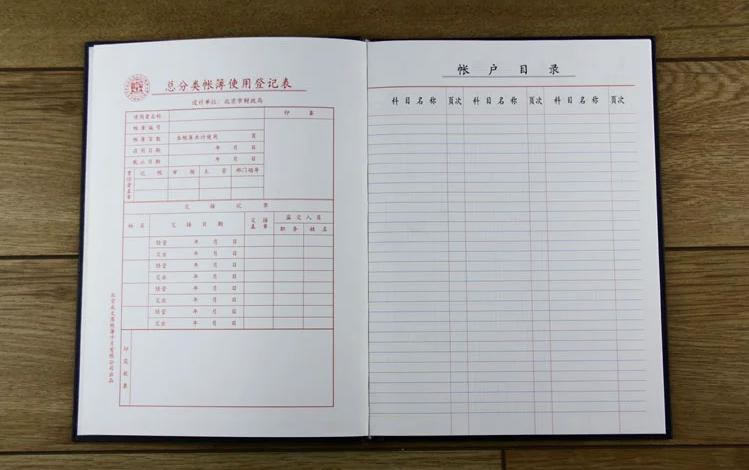 总分类帐簿使用登记表
设计单位：北京市财政局
使用者名称 印鉴
帐簿编号
帐簿页数 本帐簿共计使用 页
启用日期 年 月 日
截止日期 年 月 日
记帐 审核 主管 部门领导
交接记录
姓名 交接日期 交接盖章 监交人员
职务 姓名
经管 年 月 日
交出 年 月 日
经管 年 月 日
交出 年 月 日
经管 年 月 日
交出 年 月 日
经管 年 月 日
交出 年 月 日
印花税票
帐户目录
科目名称 页次 科目名称 页次 科目名称 页次